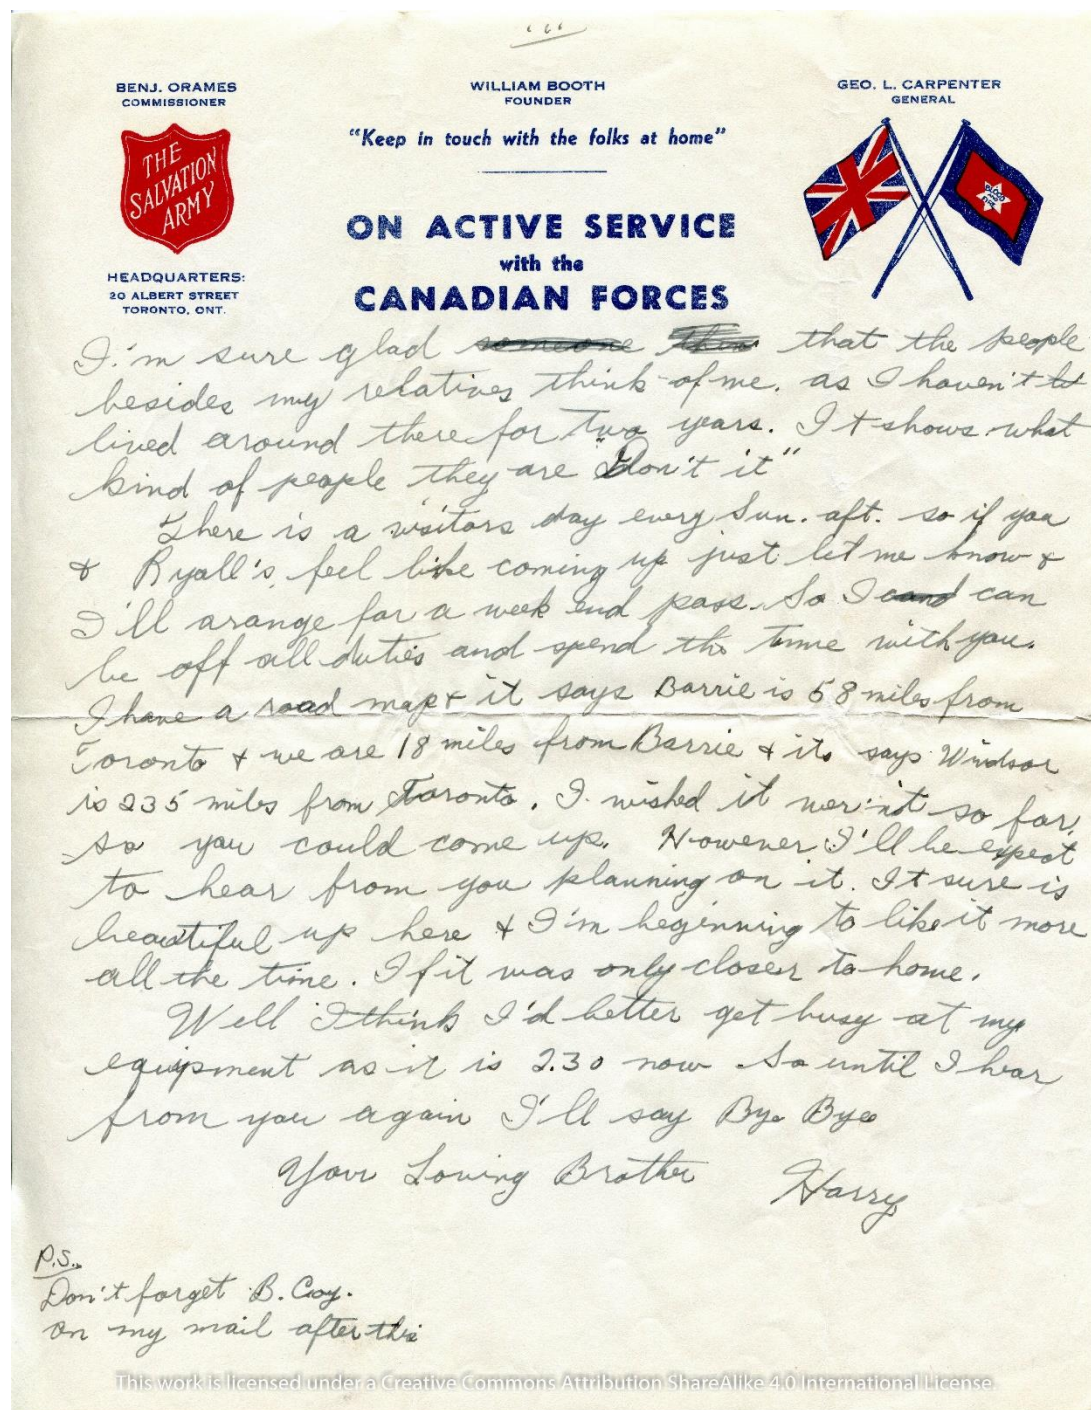 BENJ. ORAMES
COMMISSIONER
THE
SALVATION
ARMY
HEADQUARTERS:
20 ALBERT STREET
TORONTO, ONT.
WILLIAM BOOTH
FOUNDER
"Keep in touch with the folks at home"
ON ACTIVE SERVICE
with the
CANADIAN FORCES
GEO. L. CARPENTER
GENERAL
BLOOD
AND
FIRE
I'm sure glad someone that the people
besides my relatives think of me. as I haven't
lived around there for two years. It shows what
kind of people they are "Don't it"
There is a visitors day every Sun. aft. so if you
& Ryall's, feel like coming up just let me know &
I'll arange for a week end pass. So I can
be off all duties and spend the time with you.
I have a road map & it says Barrie is 58 miles from
Toronto & we are 18 miles from Barrie & its says Windsor
is 235 miles from Toronto. I wished it wer'nt so far,
so you could come up. However I'll be expect
to hear from you planning on it. It sure is
beautiful up here & I'm beginning to like it more
all the time. If it was only closer to home.
Well I think I'd better get busy at my
equipment as it is 2.30 now. So until I hear
from you again I'll say Bye Bye
Your Loving Brother Harry
P.S.
Don't forget B. Coy.
on my mail after this
This work is licensed under a Creative Commons Attribution ShareAlike 4.0 International License.